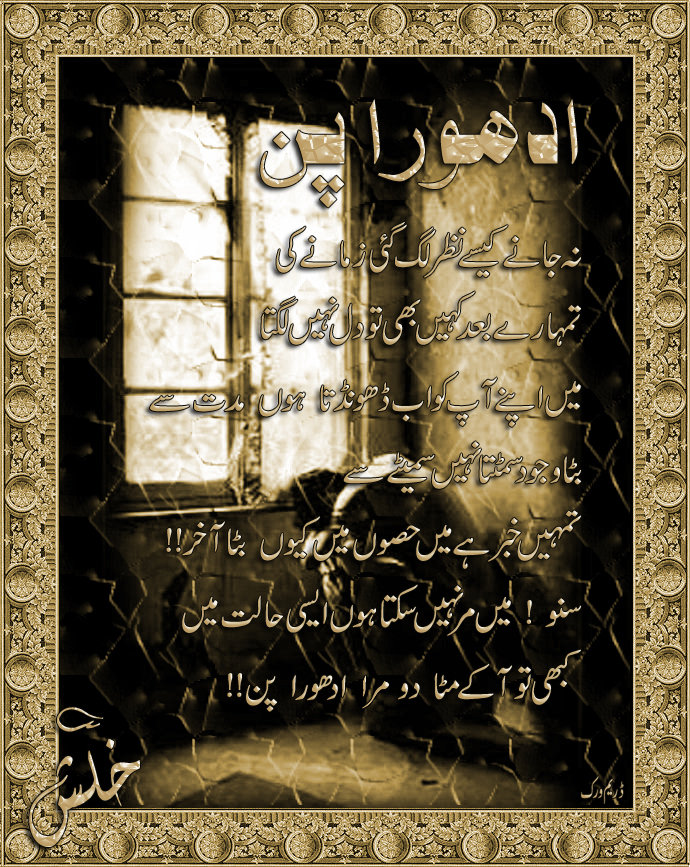 ادھورا پن
نہ جانے کیسے نظر لگ گئی زمانے کی
تمہارے بعد کہیں بھی تو دل نہیں لگتا
میں اپنے آپ کو اب ڈھونڈتا ہوں مدت سے
بٹا وجود سمٹتا نہیں سمیٹے سے
تمہیں خبر ہے میں حصوں میں کیوں بٹا آخر!!
سنو ! میں مر نہیں سکتا ہوں ایسی حالت میں
کبھی تو آ کے مٹا دو مرا ادھورا پن!!
خلش
ڈریم ورک